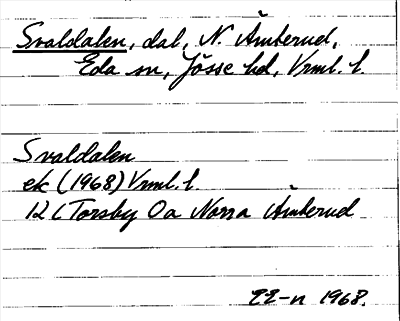 Svaldalen, dal, N. Åmberud,
Eda sn, Jösse hd, Vrml. l.
Svaldalen
ek (1968) Vrml. l.
12 C Torsby 0a Norra Åmberud
1968.